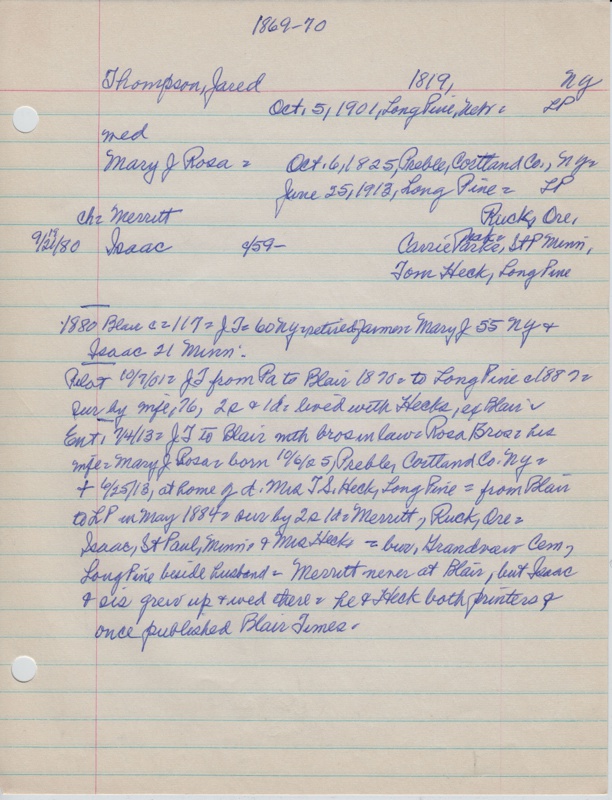 1869-70
Thompson, Jared 1819, NY
Oct. 5, 1901, Long Pine, Neb = LP
med
Mary J Rosa = Oct. 6, 1825, Preble, Cortland Co., NY =
June 25, 1913, Long Pine = LP
ch = Merritt Ruck, Ore,
9/21/80 Isaac c/59- Carrie Parks, St P Minn,
Tom Heck, Long Pine
1880 Blair c = 117 = J T = 60 NY = retired farmer = Mary J 55 NY &
Isaac 21 Minn.
Pilot 10/7/01 = JT from Pa to Blair 1870 = to Long Pine c1887 =
sur by wife, 76, 2s & 1d = lived with Hecks, of Blair
Ent, 7/4/13 = JT to Blair with bros in law = Rosa Bros = his
wife = Mary J Rosa = born 10/6/25, Preble, Cortland Co. NY =
+ 6/25/13, at home of d. Mrs T.S. Heck, Long Pine = from Blair
to LP in May 1884 = sur by 2s 1d = Merritt, Ruck, Ore =
Isaac, St Paul, Minn, & Mrs Heck = bur, Grandview Cem,
Long Pine beside husband = Merritt never at Blair, but Isaac
& sis grew up & wed there = he & Heck both printers &
once published Blair Times.